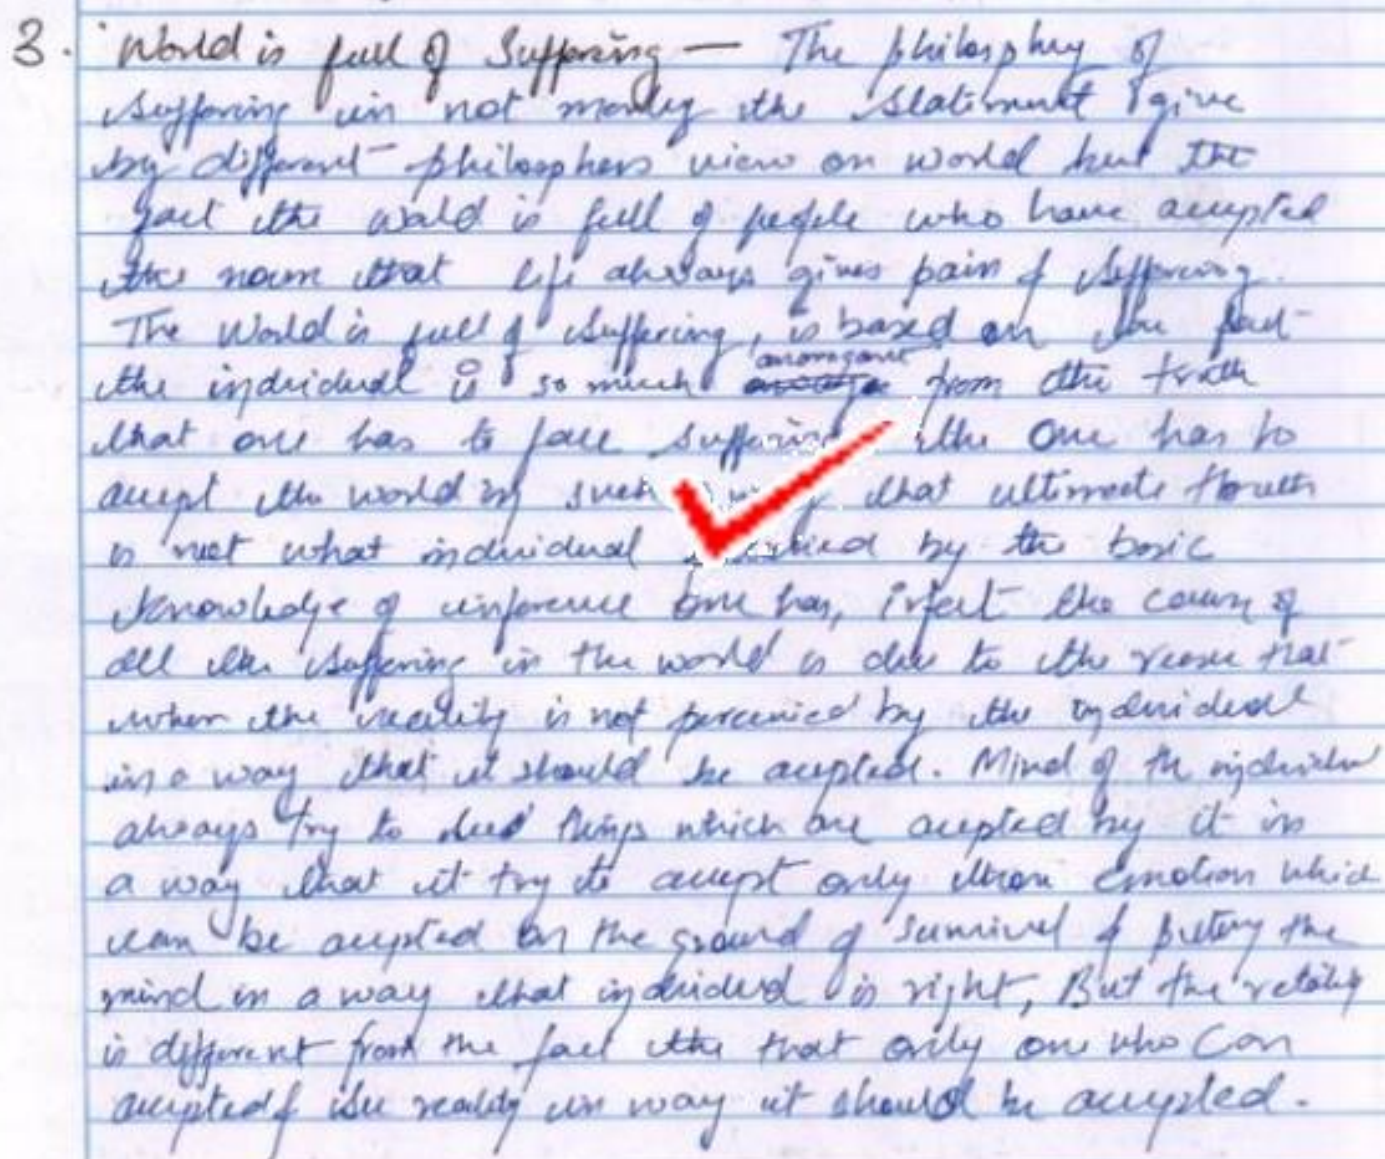 3. World is full of Suffering — The philosphy of
suffering in not merely the statement give
by different philosophers view on world but the
fact the world is full of people who have accepted
the norm that life always gives pain & suffering.
The World is full of suffering, is based on the fact
the individual is so much from the truth
that one has to face suffering the One has to
accept the world in such that ultimate truth
is not what individual by the basic
knowledge of inference one has, infact the cause of
all the suffering in the world is due to the reason that
when the reality is not perceived by the individual
in a way that it should be accepted. Mind of the individual
always try to things which are accepted by it in
a way that it try to accept only those emotion which
can be accepted on the ground of survival & the
mind in a way that individual is right, But the reality
is different from the fact the that only one who can
accepted the reality in way it should be accepted.